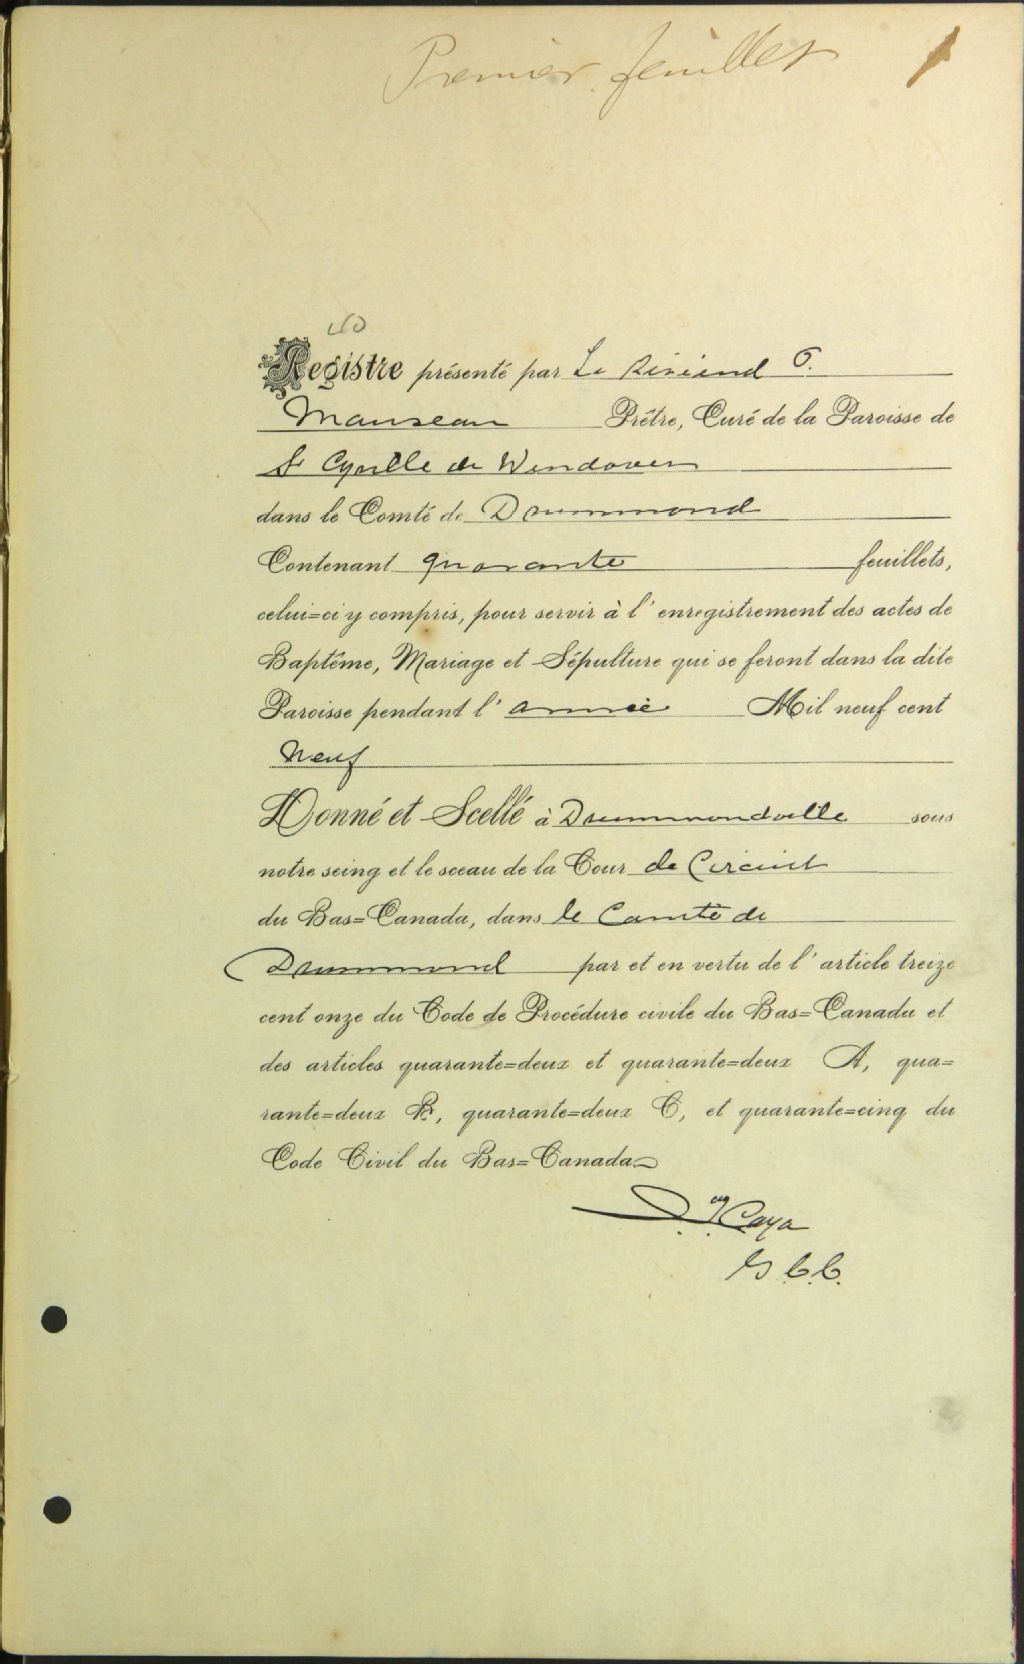 Premier feuillet 1
40
Registre présenté par Le Révérend O.
Manseau Prêtre, Curé de la Paroisse de
St Cyrille de Wendover
dans le Comté de Drummond
Contenant quarante feuillets,
celui=ci y compris, pour servir à l'enregistrement des actes de
Baptême, Mariage et Sépulture qui se feront dans la dite
Paroisse pendant l'année Mil neuf cent
Neuf
Donné et Scellé à Drummondville sous
notre seing et le sceau de la Cour de Circuit
du Bas=Canada, dans le Comté de
Drummond par et en vertu de l'article treize
cent onze du Code de Procédure civile du Bas=Canada et
des articles quarante=deux et quarante=deux A, qua=
rante=deux B, quarante=deux C, et quarante=cinq du
Code Civil du Bas=Canada
Caya
G.C.C.